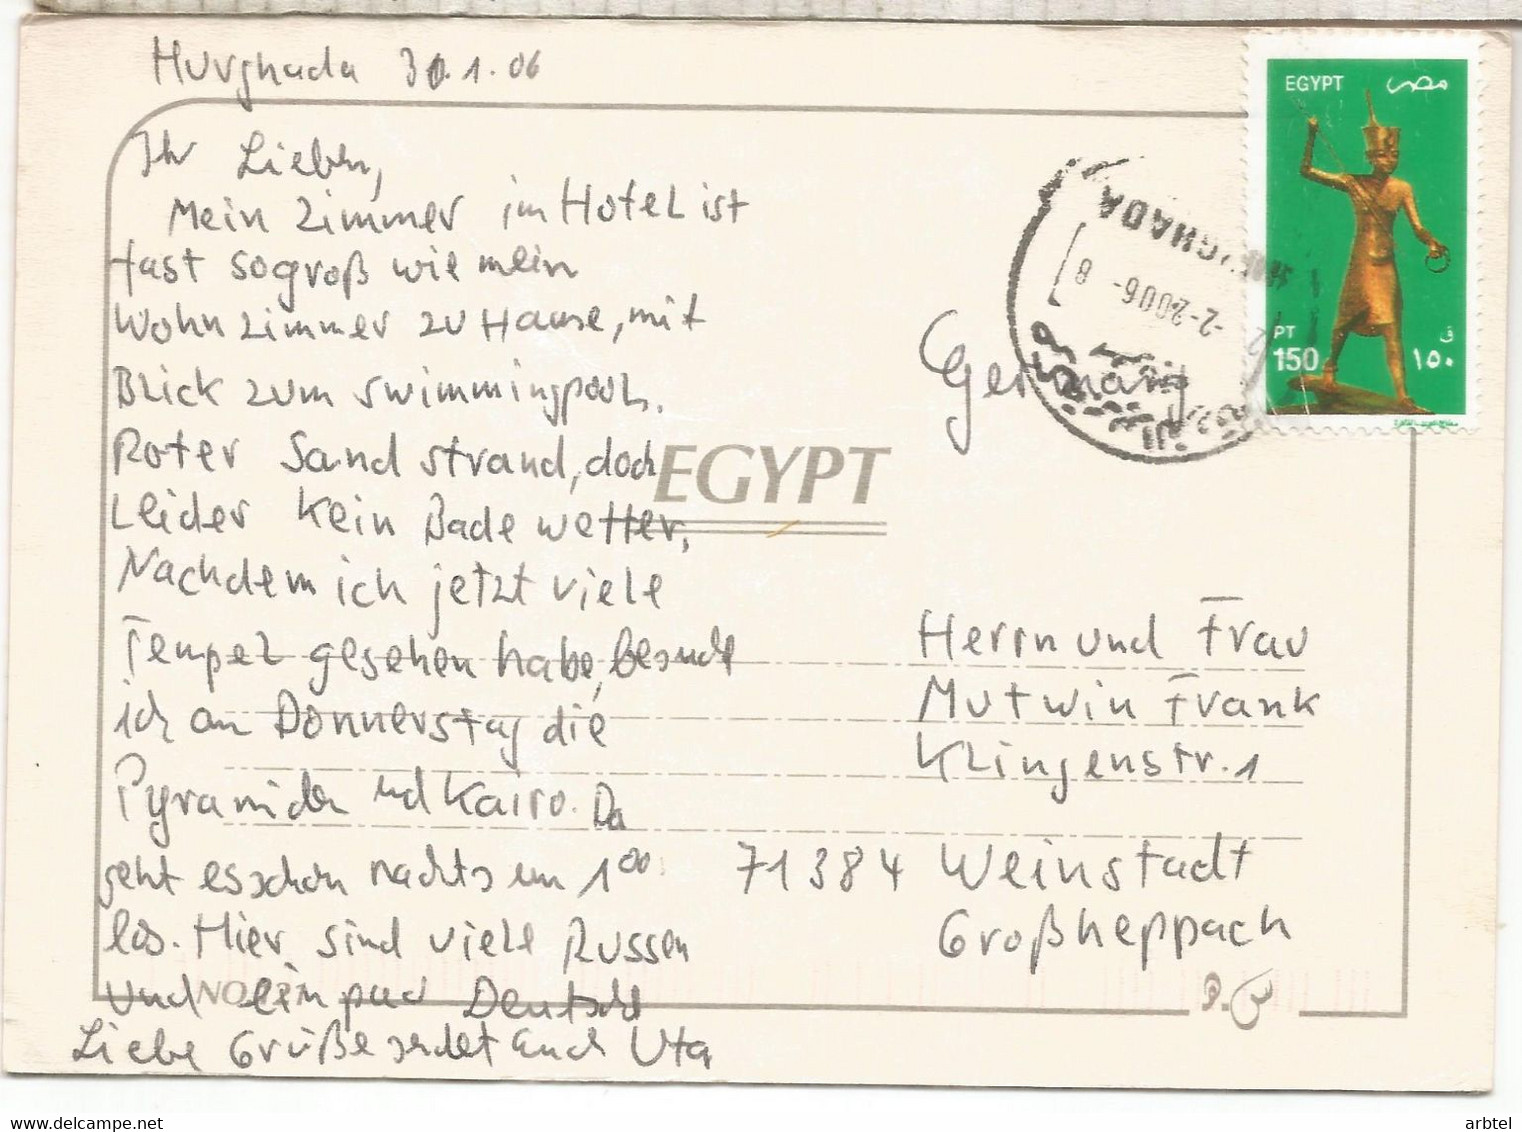 Hurghada 30.1.06
Ihr Lieben,
Mein Zimmer im Hotel ist
fast sogroß wie mein
Wohnzimmer zu Hause, mit
Blick zum swimmingpool.
Roter Sandstrand, doch
Leider kein Badewetter.
Nachdem ich jetzt viele
Tempel gesehen habe, besuche
ich am Donnerstag die
Pyramiden und Kairo. Da
geht es schon nachts um 1⁰⁰
los. Hier sind viele Russen
und ein paar Deutsche
Liebe Grüße sendet Euch Uta
EGYPT
NO
EGYPT مصر
PT
150 ١٥٠ ق
HURGHADA
-2.-2.2006- 8
Germany
Herrn und Frau
Mutwin Frank
Klingenstr. 1
71384 Weinstadt
Großheppach
arbtel